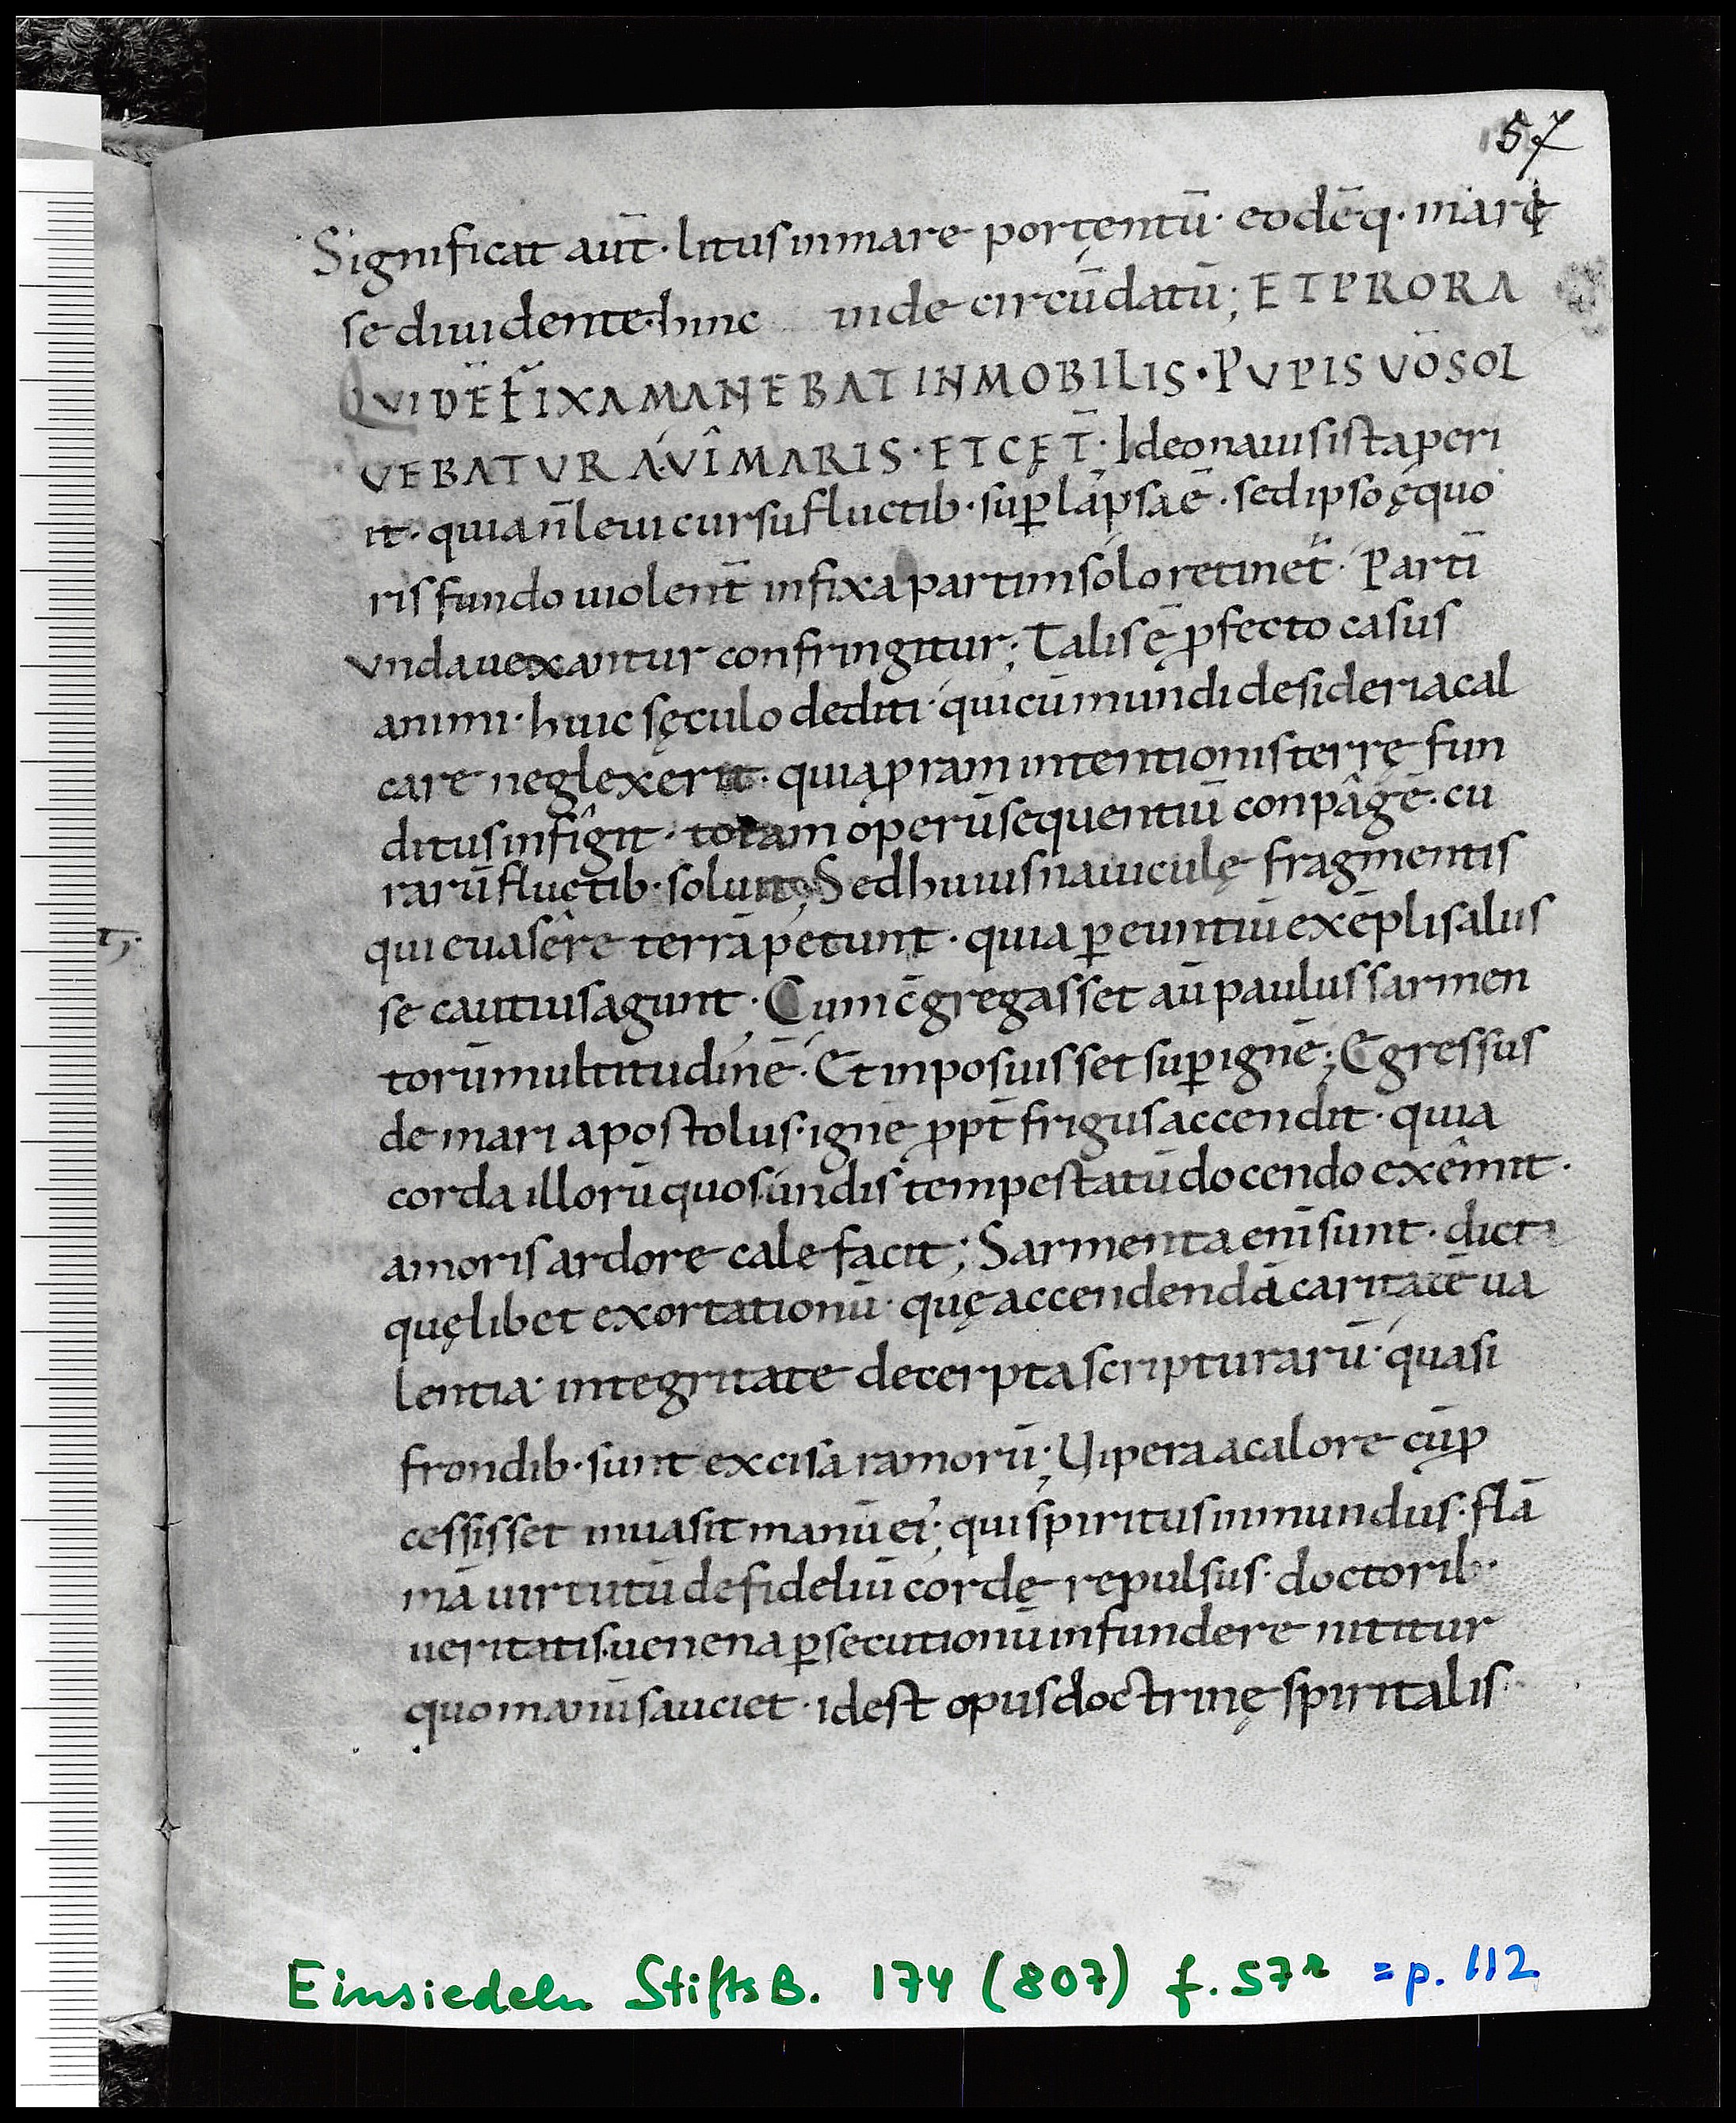 57
Significat aut̄· litus inmare porręntū· eodēq· marę
se diuidente· hinc inde circūdatū; ET PRORA
QVIDĒ FIXA MANEBAT INMOBILIS· PVPIS UŌ SOL
VEBATVR A UI MARIS· ET CĘT̄· Ideo nauis ista peri
it· quia n̄ leui cursu fluctib· sup̄ lapsa ē· sed ipso ęquo
ris fundo uiolent̄ infixa partim solo retinet̄· Partī
vnda uexantur confringitur; Talis ē p̄fecto casus
animi· huic sęculo dediti· qui cū mundi desideria cal
care neglexerit· quia p̱ram intentionis terrę fun
ditus infîgit· totam operū sequentiū conpâgē· cu
rarū fluctib· soluit; Sed huius nauiculę fragmentis
qui euasêre terrā petunt· quia p̱euntiū exēpli salus
t;·
se cautius agunt· Cum c̄gregasset aū paulus sarmen
torū multitudinē· Et inposuisset sup̱ ignē; Egressus
de mari apostolus· ignē pp̄t frigus accendit· quia
corda illorū quos undis tempestatū docendo exêmit·
amoris ardore calefacit; Sarmenta enī sunt· dicta
quęlibet exortationū· quę accendenda caritate ua
lentia· integritate decerpta scripturarū· quasi
frondib· sunt excisa ramorū; Uipera a calore cū p̱
cessisset inuasit manū ei'; qui spiritus inmundus· flā
mā uirtutū de fideliū corde repulsus· doctorib·
ueritatis· uenena p̱secutionū infundere nititur
quo manū sauciet· id est opus doctrinę spiritalis·
Einsiedeln StiftsB. 174 (807) f. 57r = p. 112